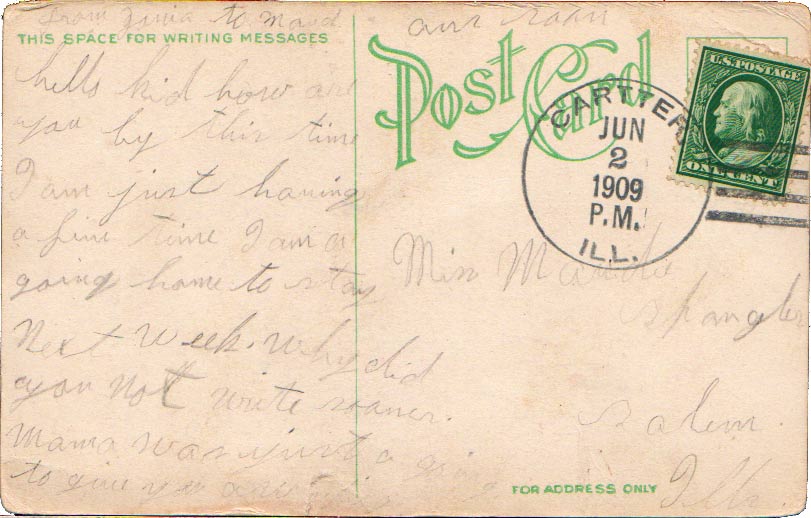 From to Maud
ans soon
THIS SPACE FOR WRITING MESSAGES
hello kid how are
you by this time
I am just having
a fine time I am a
going home to stay
Next week. Why did
you not write sooner.
Mama was just a going
to give you
Post Card
CARTTER
JUN
2
1909
P.M.
ILL.
U.S. POSTAGE
ONE CENT
Miss Maude
Spangler
Salem
Ills.
FOR ADDRESS ONLY